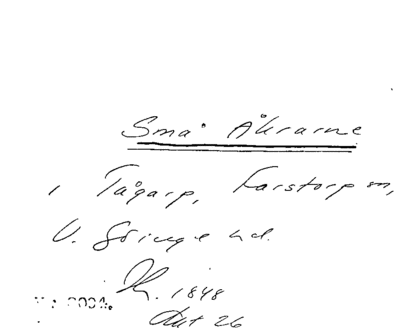 Små Åkrarne
i Tågarp, Farstorp sn,
V. Göinge hd.
1848
Akt 26